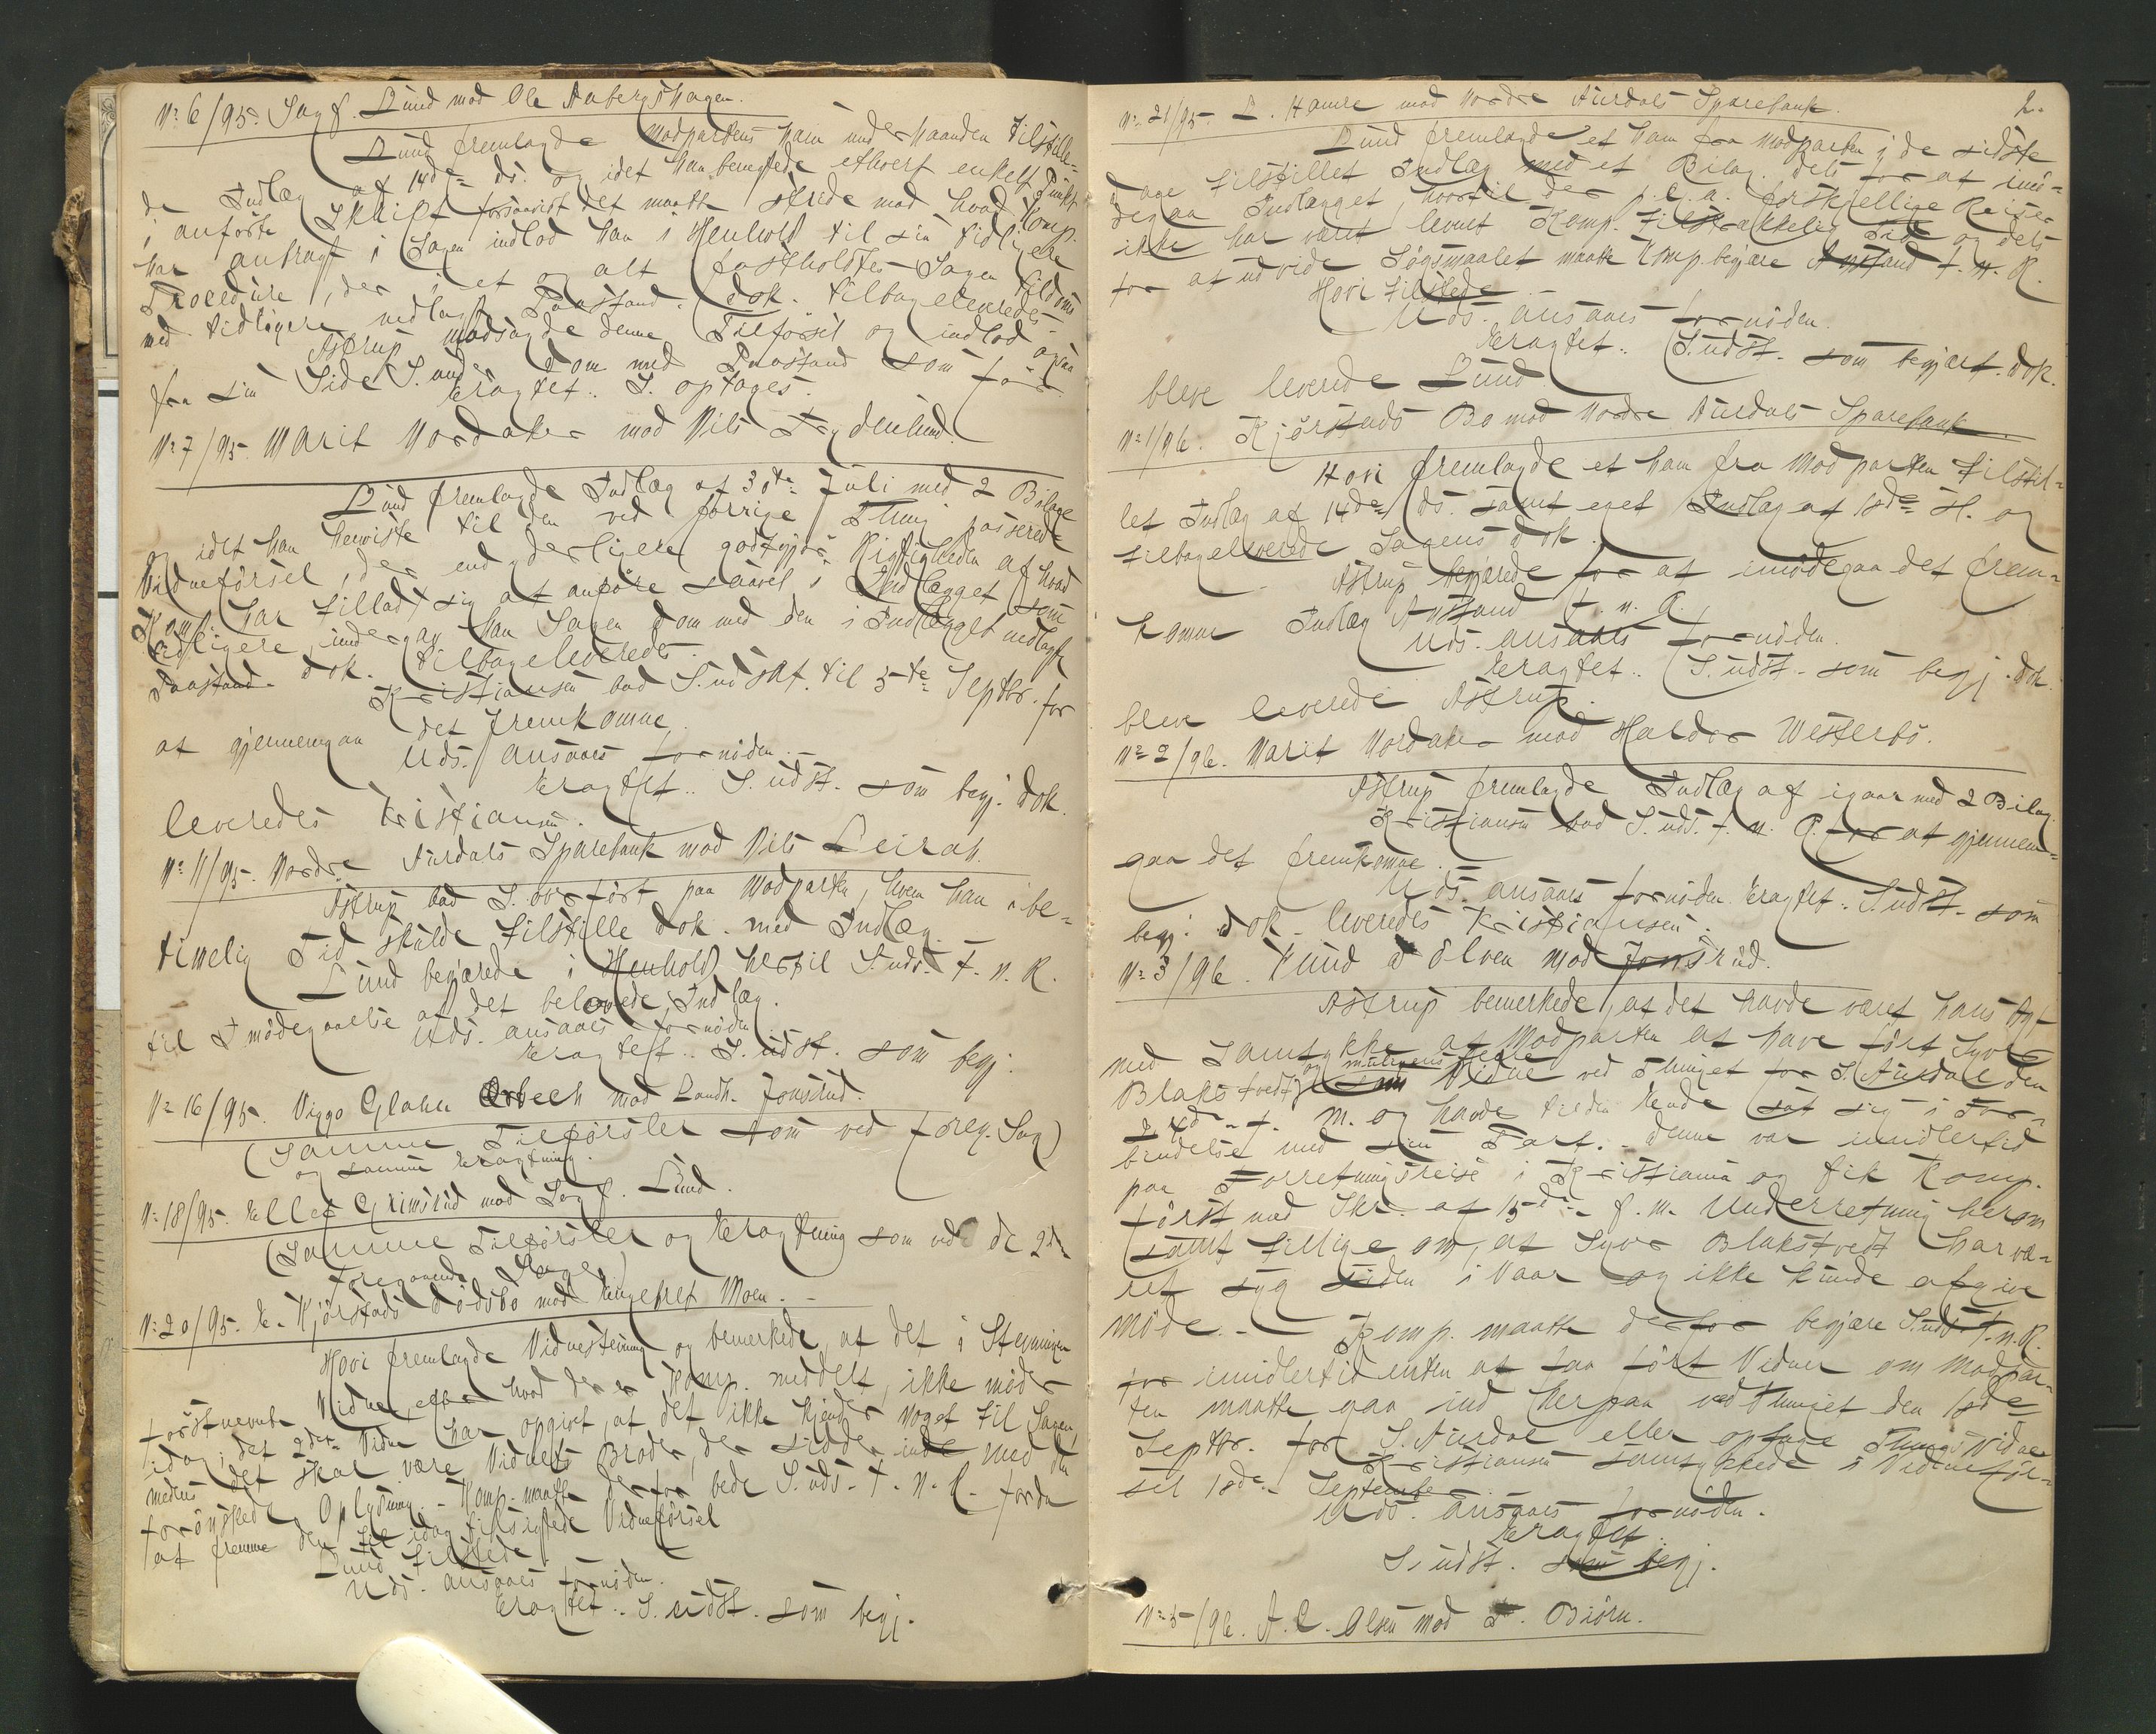 No 6/95. Sagf. Lund mod Ole Aabergshagen.
Lund fremlagde Modpartens ham underhaanden tilstille-
de Indlæg af 14de ds. og idet han benegtede ethvert enkelt Punkt
i anførte Skrift forsaavidt det maatte stride mod hvad Komp.
har anbragt i Sagen indlod han i Henhold til sin tidligere
Procedure, der i et og alt fastholdtes Sagen tildoms
med tidligere nedlagt Paastand. Dok. tilbageleveredes.
Astrup modsagde denne Tilførsel og indlod ogsaa
fra sin Side S. under Dom med Paastand som før
Eragtet: S. optages.
No 7/95. Marit Nordaker mod Nils Frydenlund.
Lund fremlagde Indlæg af 30te Juli med 2 Bilage
og idet han henviste til den ved forrige Thing passerede
Vidneførsel, der end yderligere godtgjør Rigtigheden af hvad
Komp. har tilladt sig at anføre saavel i Indlægget som
tidligere, undergav han Sagen Dom med den i Indlægget nedlagte
Paastand. Dok. tilbageleveredes.
Kristiansen bad S. udsat til 5te Septbr. for
at gjennemgaa det Fremkomne.
Uds. ansaaes fornøden.
Eragtet: S. udst. som begj. Dok.
leveredes Kristiansen.
No 11/95. Nordre Aurdals Sparebank mod Nils Leirah.
Astrup bad S. overført paa Modparten, hvem han i be-
timelig Tid skulde tilstille Dok. med Indlæg.
Lund begjærede i Henhold hertil S. uds. t. n. R.
til Imødegaaelse af det belovede Indlæg.
Uds. ansaaes fornøden
Eragtet: S. udst. som begj.
No 16/95. Viggo Glahn Orbech mod Landh. Jonsrud.
(Samme Tilførsler som ved foreg. Sag)
og samme Eragtning.
No 18/95. Ellef Grimsrud mod Sagf. Lund.
(Samme Tilførsler og Eragtning som ved de 2de
foregaaende Sager)
No 20/95. E. Kjørstads Dødsbo mod Engebret Moen.
Hovi fremlagde Vidnestevning og bemerkede, at det i Stevningen
førstnevnte Vidne, efter hvad der er Komp. meddelt, ikke møder
idag; det 2det Vidne har opgivet, at det ikke kjender noget til Sagen,
medens det skal være Vidnets Broder, der sidder inde med den
forønskede Oplysning. Komp. maatte derfor bede S. uds. t. n. R. for da
at fremme den til idag tilsigtede Vidneførsel
Lund tilstede.
Uds. ansaaes fornøden.
Eragtet: S. udst. som begj.
2.
No 21/95. L. Hamre mod Nordre Aurdals Sparebank.
Lund fremlagde et ham fra Modparten i de sidste
Dage tilstillet Indlæg med et Bilag. Dels for at imø-
degaa Indlægget, hvortil der p. G. a. forskjellige Reiser
ikke har været levnet Komp. tilstrækkelig Tid og dels
for at udvide Søgsmaalet maatte Komp. begjære Anstand t. n. R.
Hovi tilstede.
Uds. ansaaes fornøden.
Eragtet: S. udst. som begjært. Dok.
bleve leverede Lund.
No 1/96. Kjørstads Bo mod Nordre Aurdals Sparebank.
Hovi fremlagde et ham fra Modparten tilstil-
let Indlæg af 14de ds. samt eget Indlæg af 18de s. M. og
tilbageleverede Sagens Dok.
Astrup begjærede for at imødegaa det frem-
komne Indlæg Anstand t. n. R.
Uds. ansaaes fornøden.
Eragtet: S. udst. som begj. Dok.
bleve leverede Astrup.
No 2/96. Marit Nordaker mod Haldor Westerbø.
Astrup fremlagde Indlæg af igaar med 2 Bilag.
Kristiansen bad S. uds. t. n. R. for at gjennem-
gaa det fremkomne.
Uds. ansaaes fornøden. Eragtet: S. udst. som
begj. Dok. leveredes Kristiansen.
No 3/96. Knud Ølven mod Jonsrud.
Astrup bemerkede, at det havde været hans Agt
med Samtykke af Modparten at have ført Syver
Blakstvedt og muligens flere som Vidne ved Thinget for S. Aurdal den
f. M. og havde til den Ende sat sig i For-
bindelse med sin Part. Denne var imidlertid
paa Forretningsreise i Kristiania og fik Komp.
først ved Skr. af 15de f. M. Underretning herom
samt tillige om, at Syver Blakstvedt har væ-
ret syg siden i Vaar og ikke kunde afgive
Møde. Komp. maatte derfor begjære S. uds. t. n. R.
for imidlertid enten at faa ført Vidner om Modpar-
ten maatte gaa ind herpaa ved Thinget den 18de
Septbr. for S. Aurdal eller optage Thingsvidne
Kristiansen samtykkede i Vidnefør-
sel 18de September
Uds. ansaaes fornøden.
Eragtet
S. udst. som begj.
No 5/96. A. C. Olsen mod T. Bjørn.